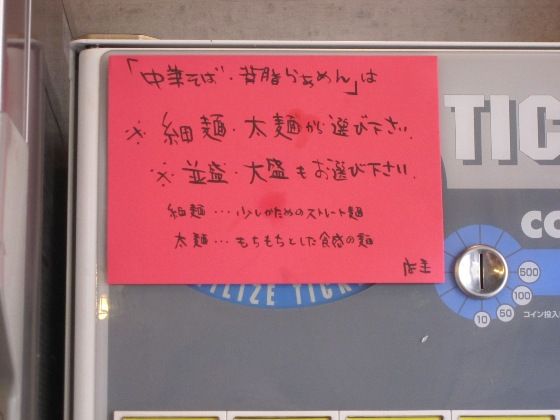 「中華そば・背脂らぁめん」は
※細麺・太麺から選び下さい.
※並盛・大盛もお選び下さい.
細麺…少しかためのストレート麺
太麺…もちもちとした食感の麺
店主
TIC
CO
500
100
50
10
コイン投入
ILIZE TICK